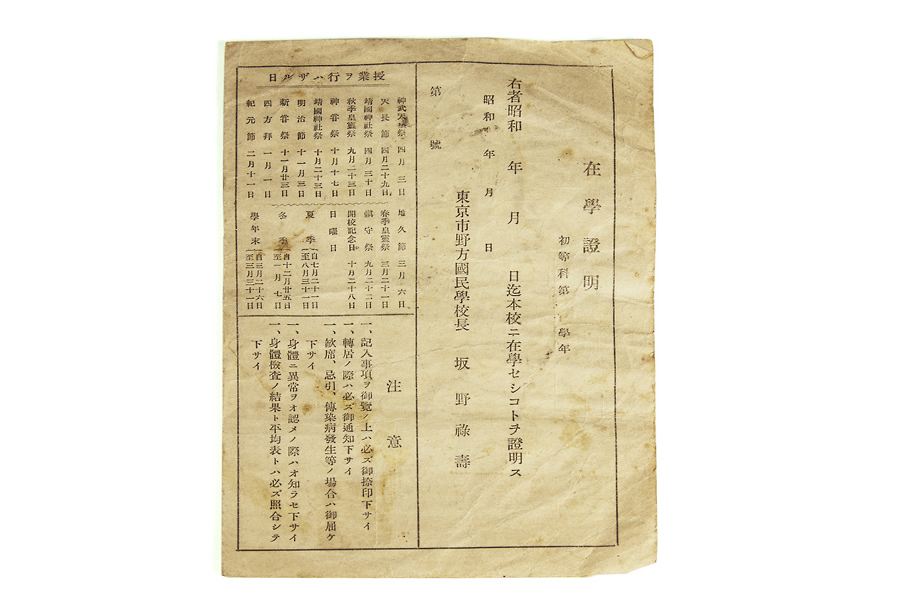 在學證明
初等科第 學年
右者昭和 年 月 日迄本校ニ在學セシコトヲ證明ス
昭和 年 月 日
東京市野方國民學校長 坂野祿壽
第 號
授業ヲ行ハザル日
神武天皇祭 四月三日
天長節 四月二十九日
靖國神社祭 四月三十日
秋季皇靈祭 九月二十三日
神嘗祭 十月十七日
靖國神社祭 十月二十三日
明治節 十一月三日
新嘗祭 十一月廿三日
四方拜 一月一日
紀元節 二月十一日
地久節 三月六日
春季皇靈祭 三月二十一日
鎮守祭 九月二十二日
開校記念日 十月二十八日
日曜日
夏季 自七月二十一日 至八月三十一日
冬季 自十二月廿五日 至一月七日
學年末 自三月二十六日 至三月三十一日
注意
一、記入事項ヲ御覽ノ上ハ必ズ御捺印下サイ
一、轉居ノ際ハ必ズ御通知下サイ
一、缺席、忌引、傳染病發生等ノ場合ハ御屆ケ
下サイ
一、身體ニ異常ヲオ認メノ際ハオ知ラセ下サイ
一、身體檢査ノ結果ト平均表トハ必ズ照合シテ
下サイ